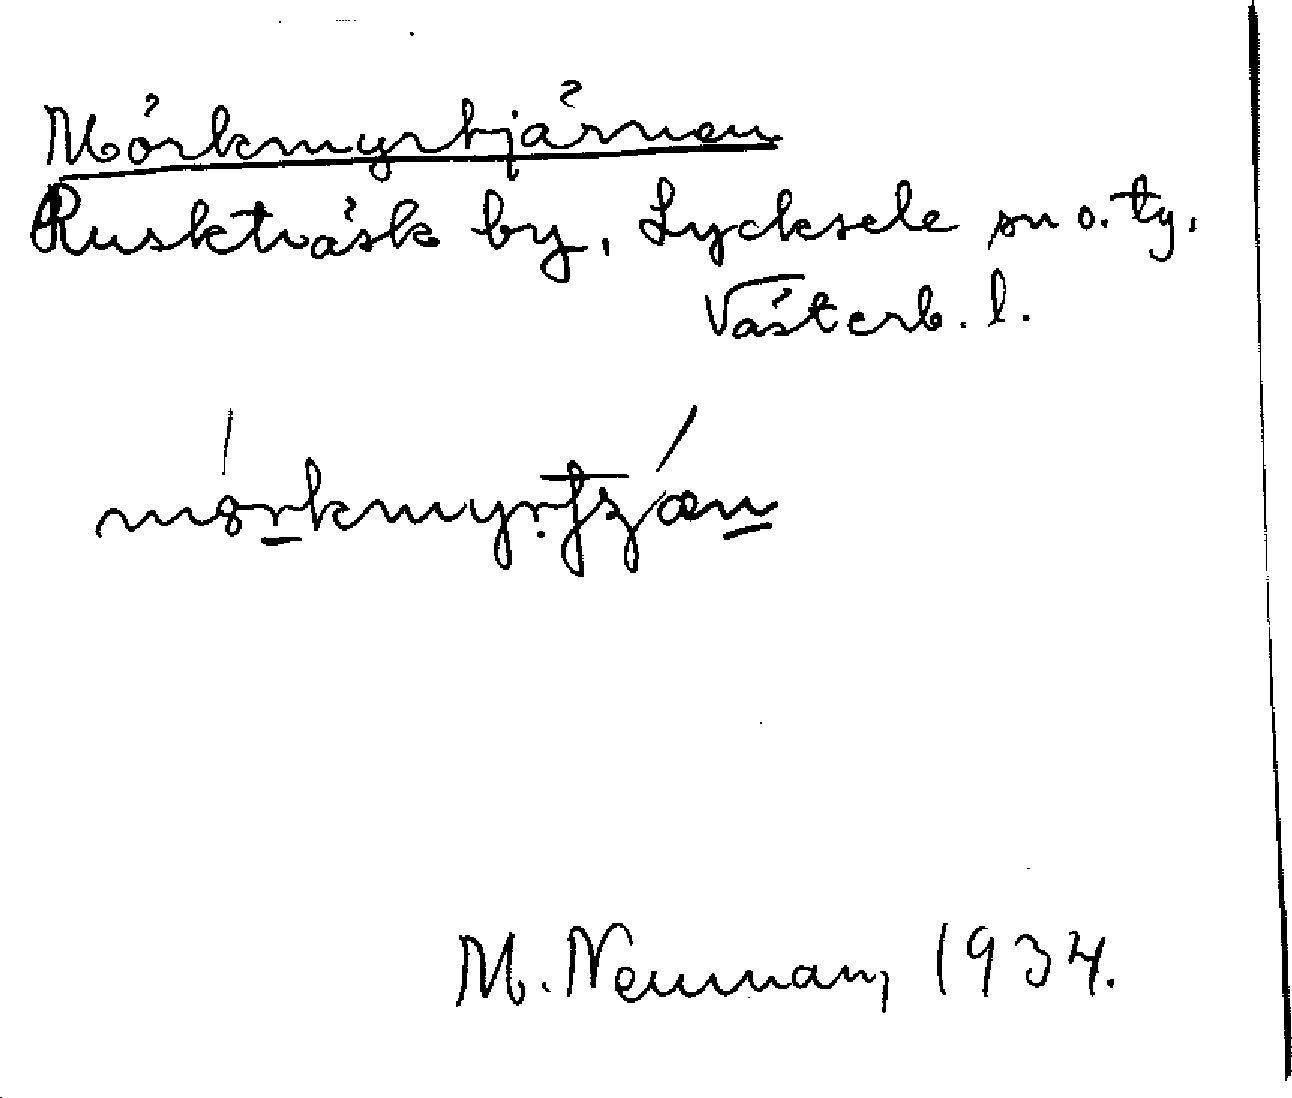 Mörkmyrtjärnen
Rusktväsk by, Lycksele sn o. tg,
Västerb. l.
M. Neuman, 1934.